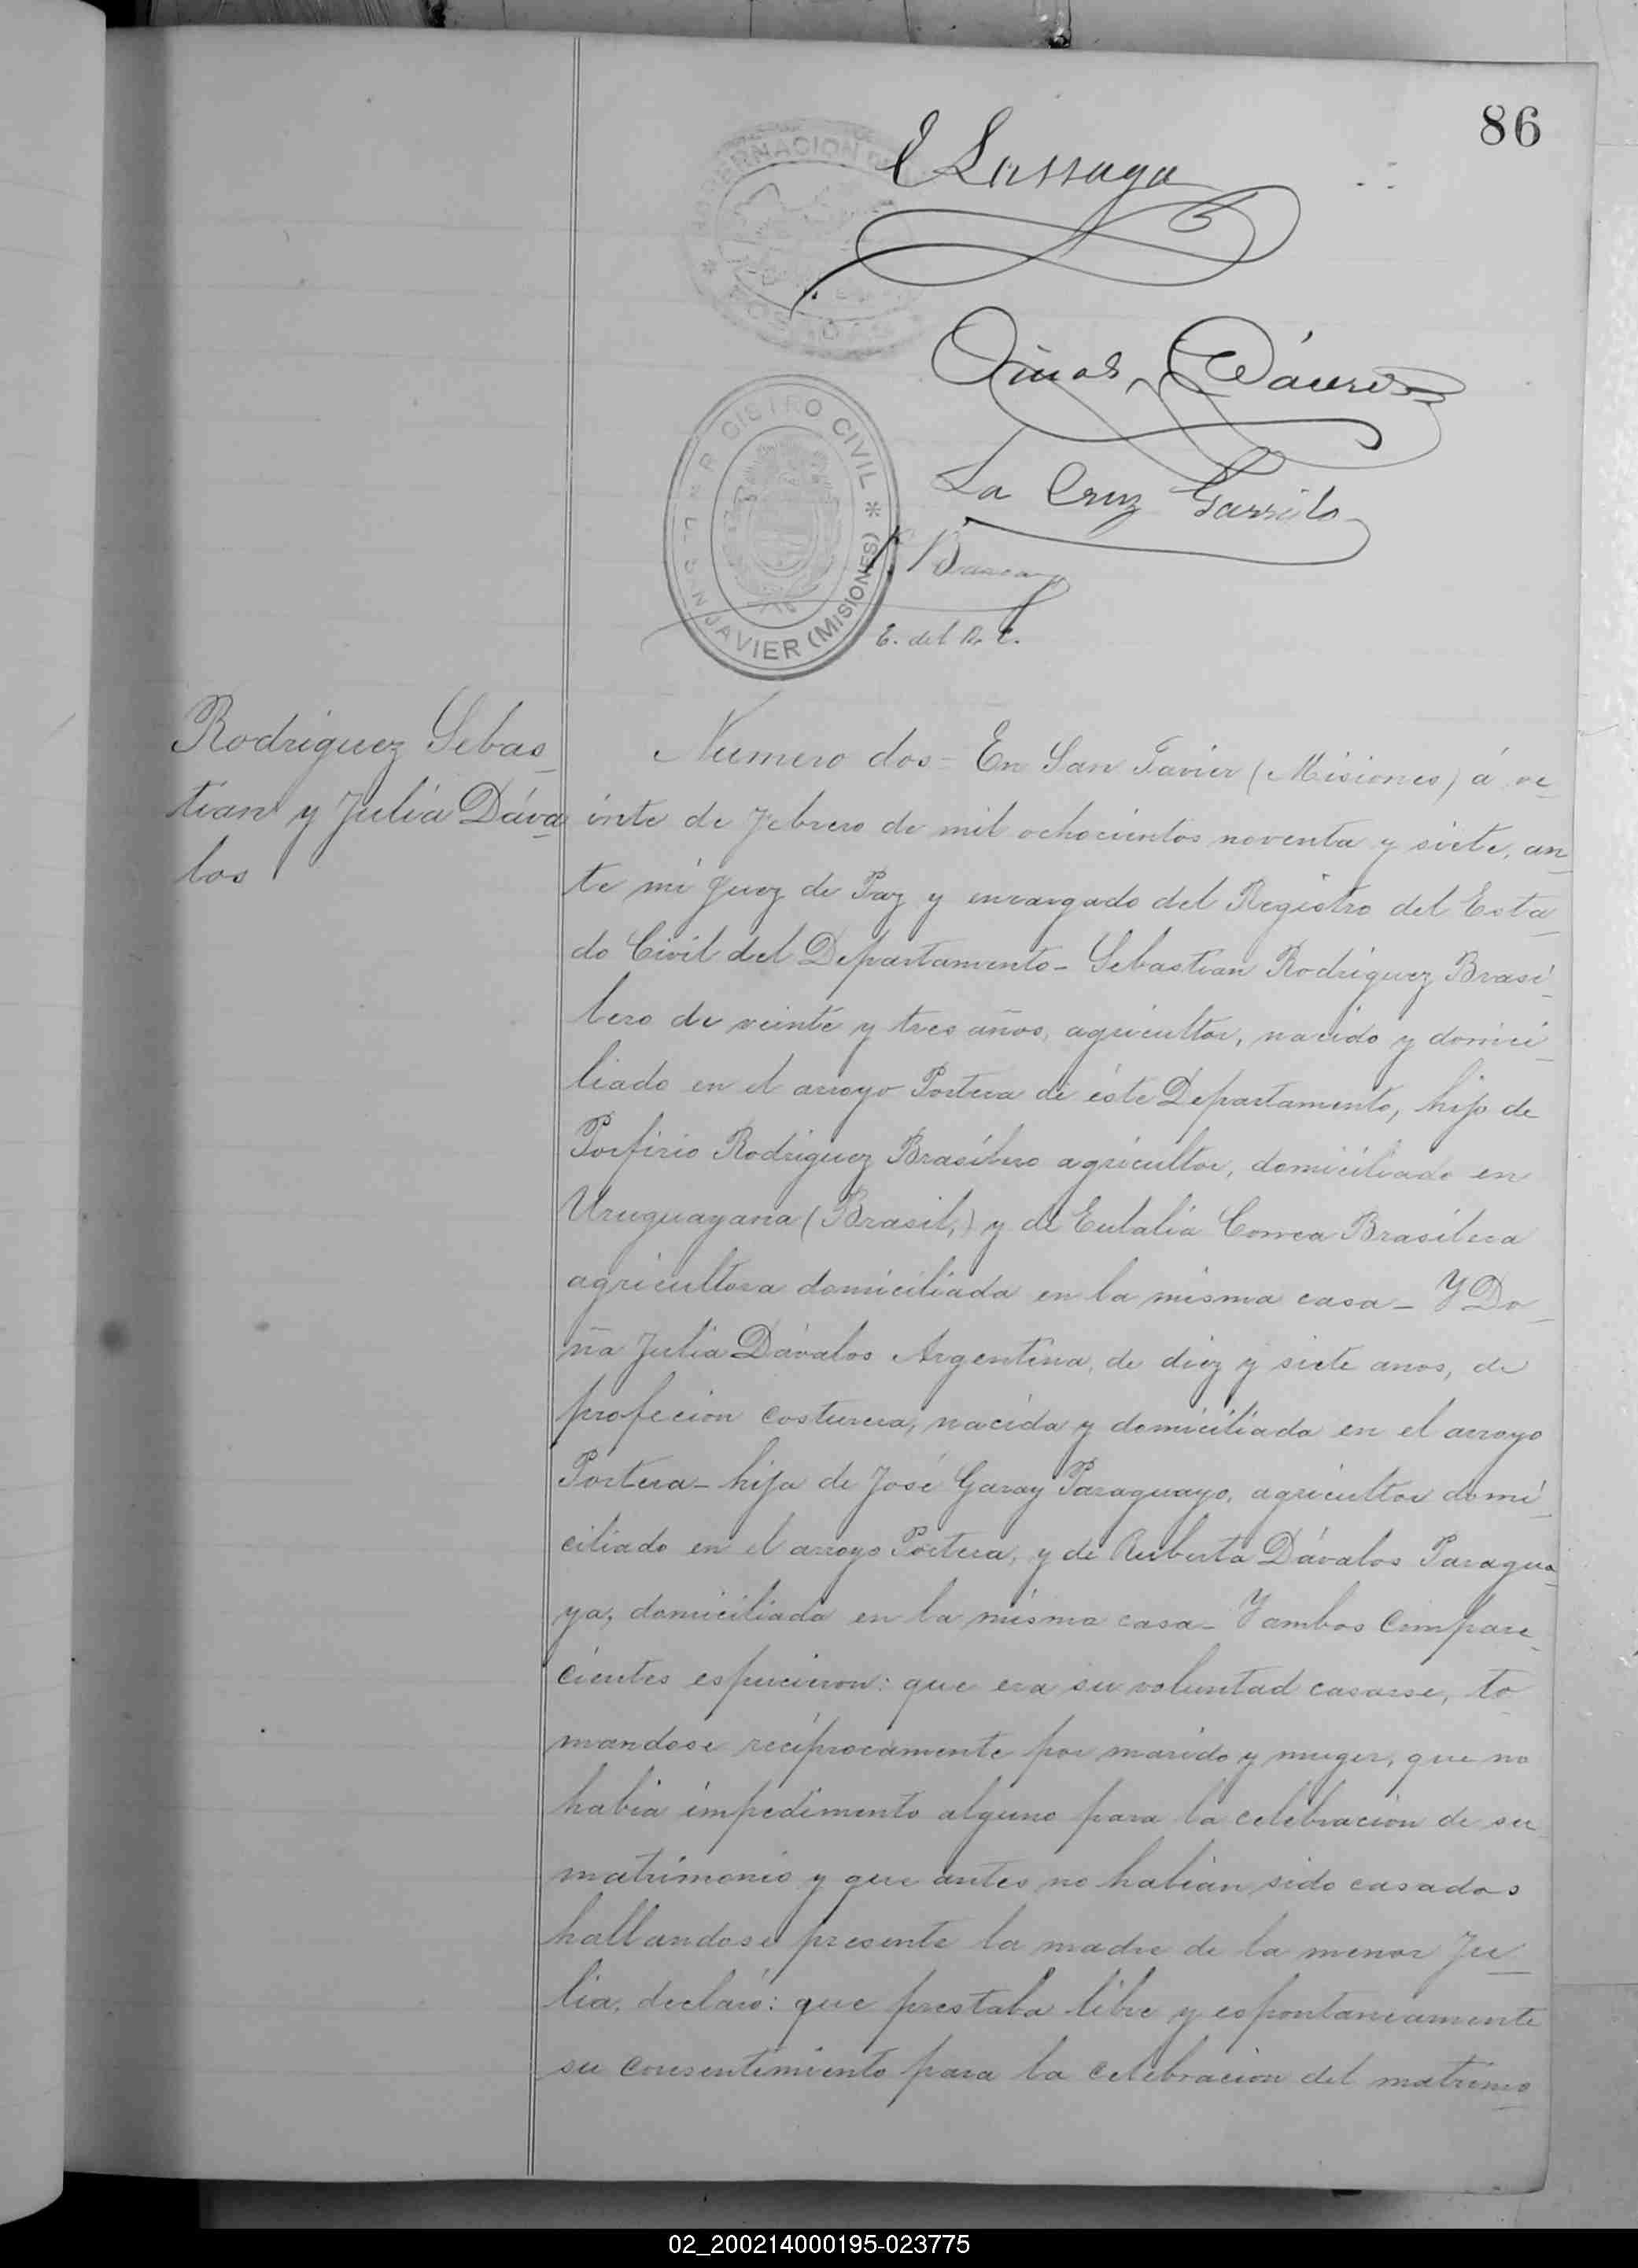 86
GOBERNACION
E Lassaga
La Cruz Garrido
REGISTRO CIVIL * SAN JAVIER (MISIONES)
E. del R. C.
Rodriguez Sebas_
tian y Julia Dáva_
los
Numero dos = En San Javier (Misiones) á ve_
inte de Febrero de mil ochocientos noventa y siete, an_
te mi Juez de Paz y encargado del Registro del Esta_
do Civil del Departamento_ Sebastian Rodriguez Brasi_
lero de veinte y tres años, agricultor, nacido y domici_
liado en el arroyo Portera de éste Departamento, hijo de
Porfirio Rodriguez Brasilero agricultor, domiciliado en
Uruguayana (Brasil,) y de Eulalia Correa Brasilera
agricultora domiciliada en la misma casa_ Y Do_
ña Julia Dávalos Argentina, de diez y siete anos, de
profecion costurera, nacida y domiciliada en el arroyo
Portera_ hija de José Garay Paraguayo, agricultor domi_
ciliado en el arroyo Portera, y de Ruberta Dávalos Paragua_
ya, domiciliada en la misma casa_ Y ambos Compare_
cientes espucieron: que era su voluntad casarse, to_
mandose reciprocamente por marido y muger, que no
habia impedimento alguno para la celebracion de su
matrimonio y que antes no habian sido casados
hallandose presente la madre de la menor Ju_
lia, declaró: que prestaba libre y espontaneamente
su consentimiento para la celebracion del matrimo_
02_200214000195-023775